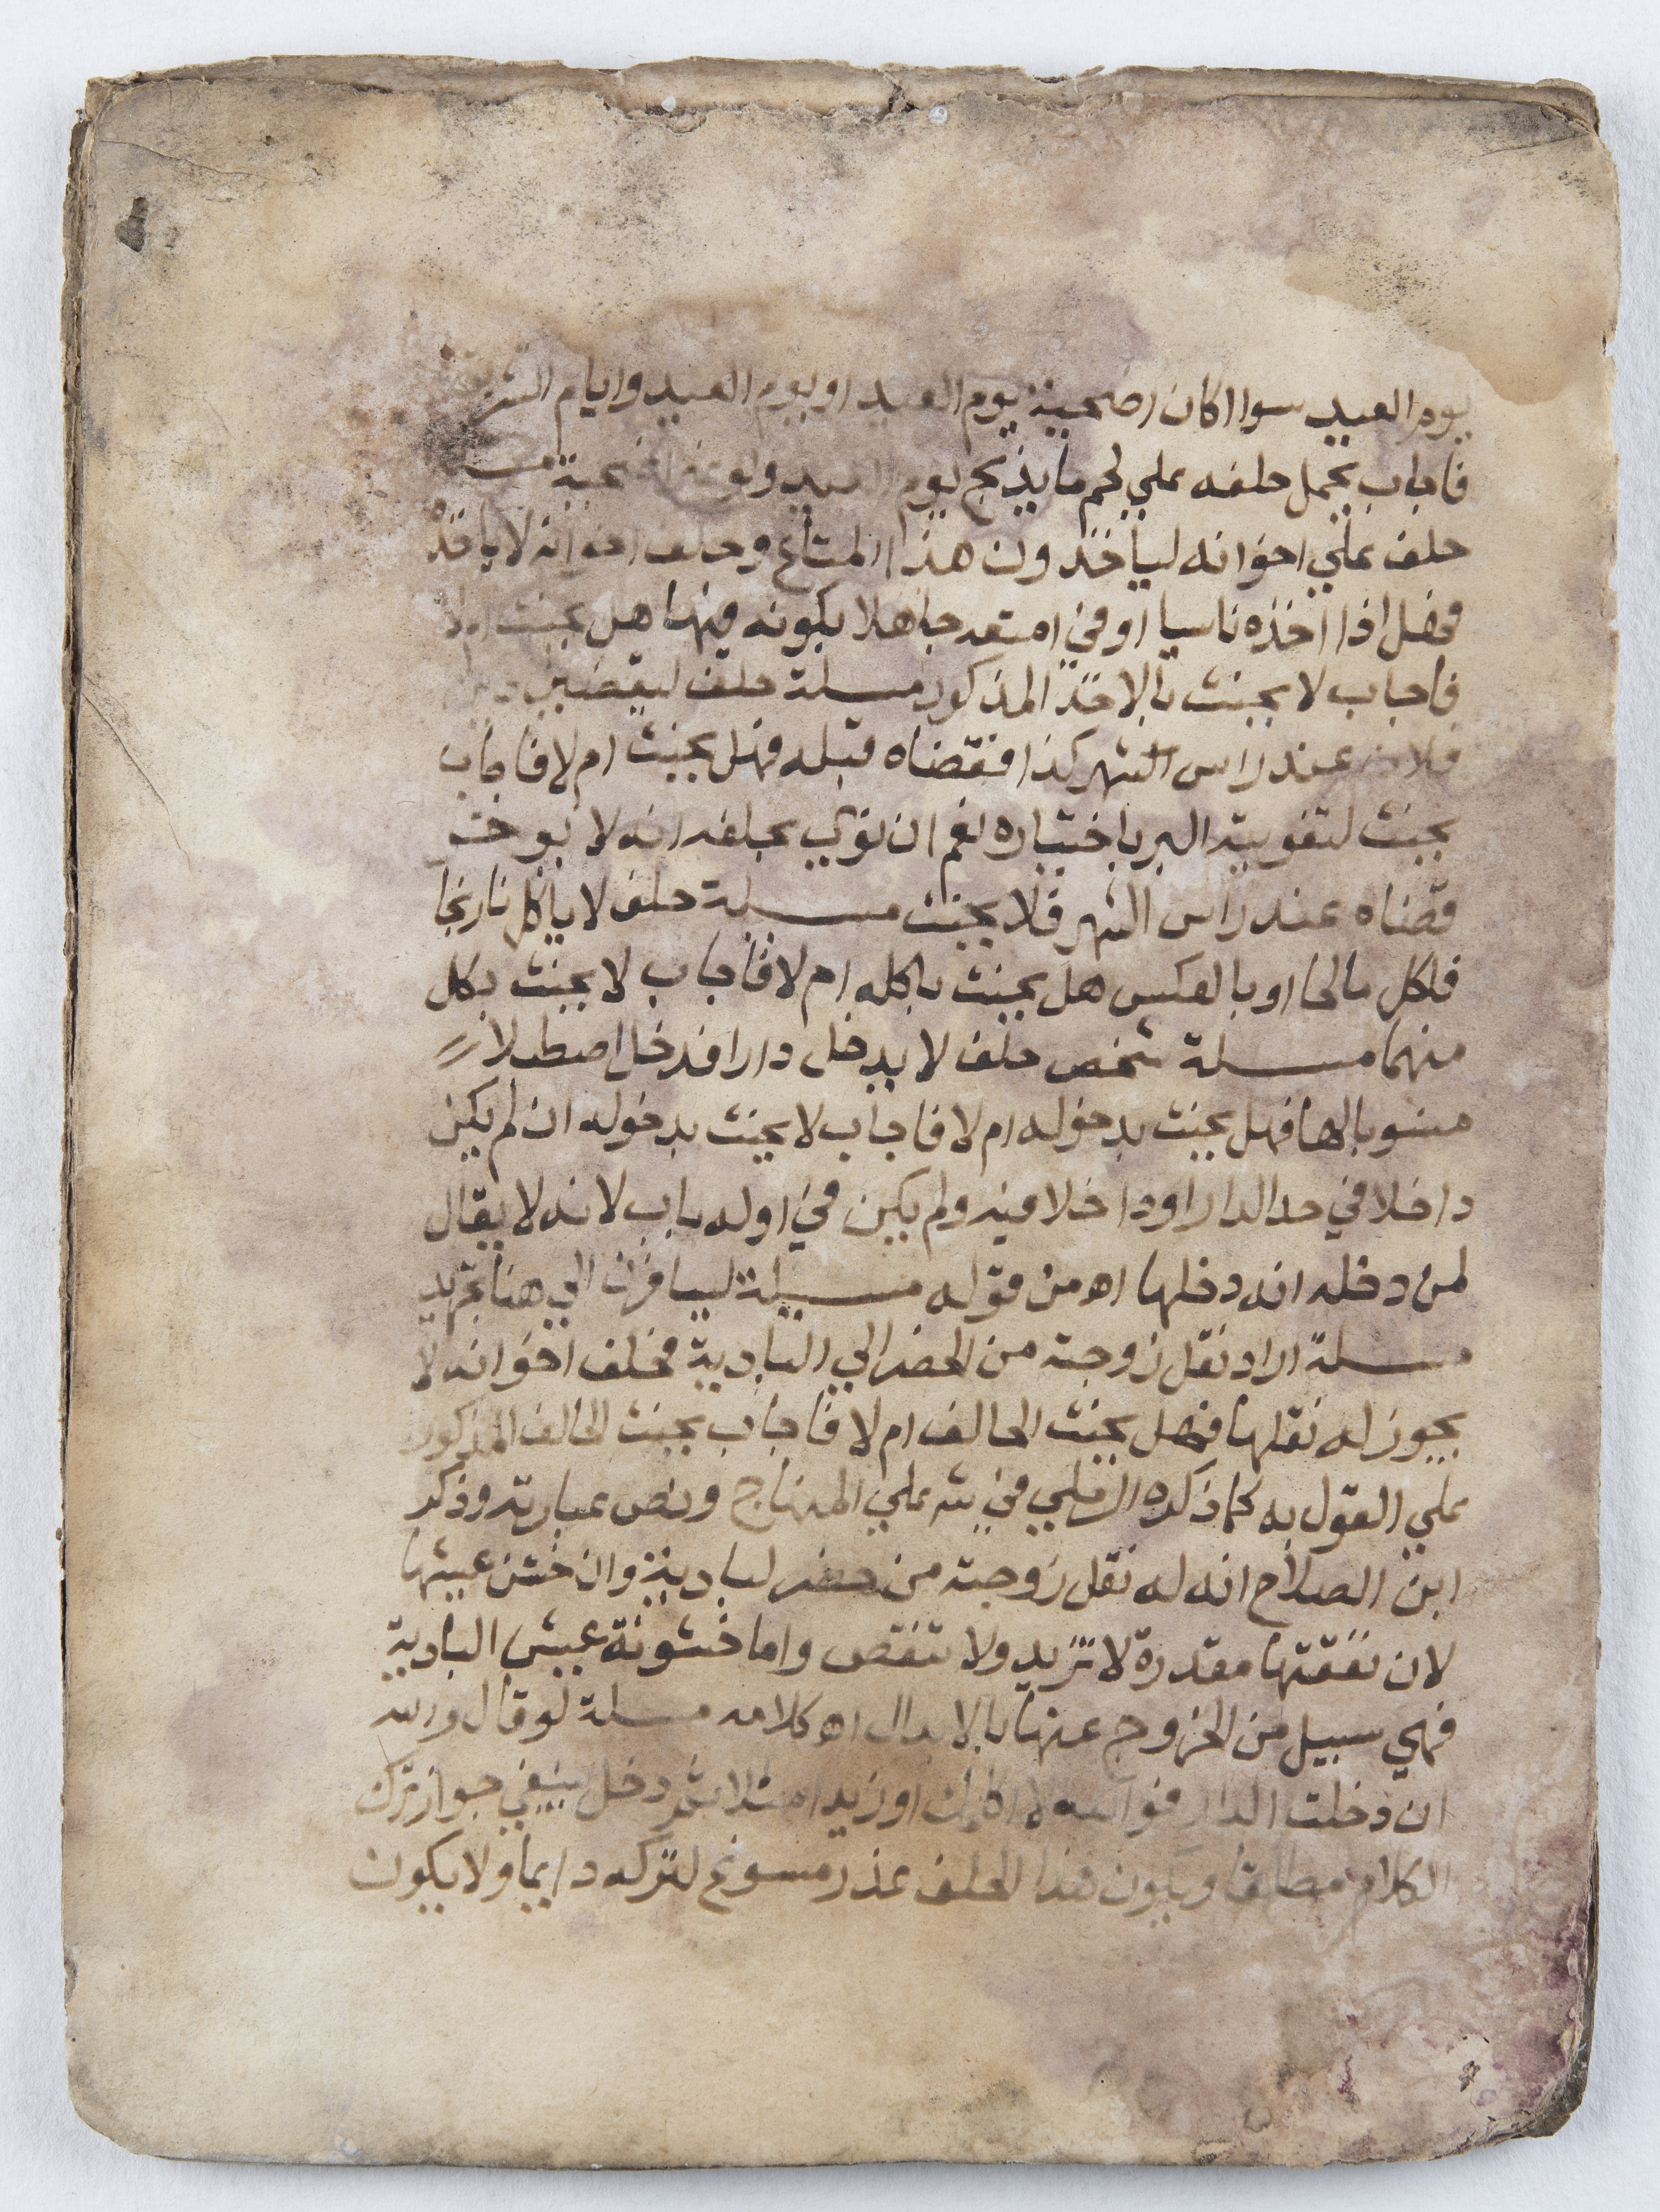 يوم العيد سوا اكان اضحية يوم العيد او يوم العيد وايام
فاجاب يحمل حلفه علي لحم ما يذبح يوم العيد ولو غير اضحية
حلف علي اخوانه لياخذون هذا المتاع وحلف اخوانه لا ياخذ
فهل اذا اخذه ناسيا او في جاهلا بكونه منها هل يحنث ام لا
فاجاب لا يحنث بالاخذ المذكور مسلة حلف ليقضين
فلان عند راس الشهر كذا فقضاه قبله فهل يحنث ام لا فاجاب
يحنث لتفويته البر باختياره نعم ان نوي بحلفه انه لا يوخر
قضاه عند راس الشهر فلا يحنث مسيلة حلف لا ياكل نارنجا
فاكل مالحا او بالعكس هل يحنث باكله ام لا فاجاب لا يحنث بكل
منهما مسلة شخص حلف لا يدخل دارا فدخل اصطبلا
منسوبا لها فهل يحنث بدخوله ام لا فاجاب لا يحنث بدخوله ان لم يكن
داخلا في حد الدار او داخلا فيه ولم يكن في اوله باب لانه لا يقال
لمن دخله انه دخلها اه من قوله مسيلة ليسافرن الي هنا
مسلة اراد نقل زوجته من الحضر الي البادية فحلف اخوانه لا
يجوز له نقلها فهل يحنث الحالف ام لا فاجاب يحنث الحالف المذكور
علي القول به كما ذكره الرملي في شه علي المنهاج ونص عبارته وذكر
ابن الصلاح انه له نقل زوجته من حضر لبادية وان خشن عيشها
لان نفقتها مقدرة لا تزيد ولا تنقص واما خشونة عيش البادية
فهي سبيل من الخروج عنها بالابدال اه كلامه مسلة لو قال
ان دخلت الدار فوالله لا اكلمك او زيدا مثلا ثم دخل ينبغي جواز ترك
الكلام مطلقا ويكون هذا الحلف عذر مسوغ لتركه دايما ولا يكون